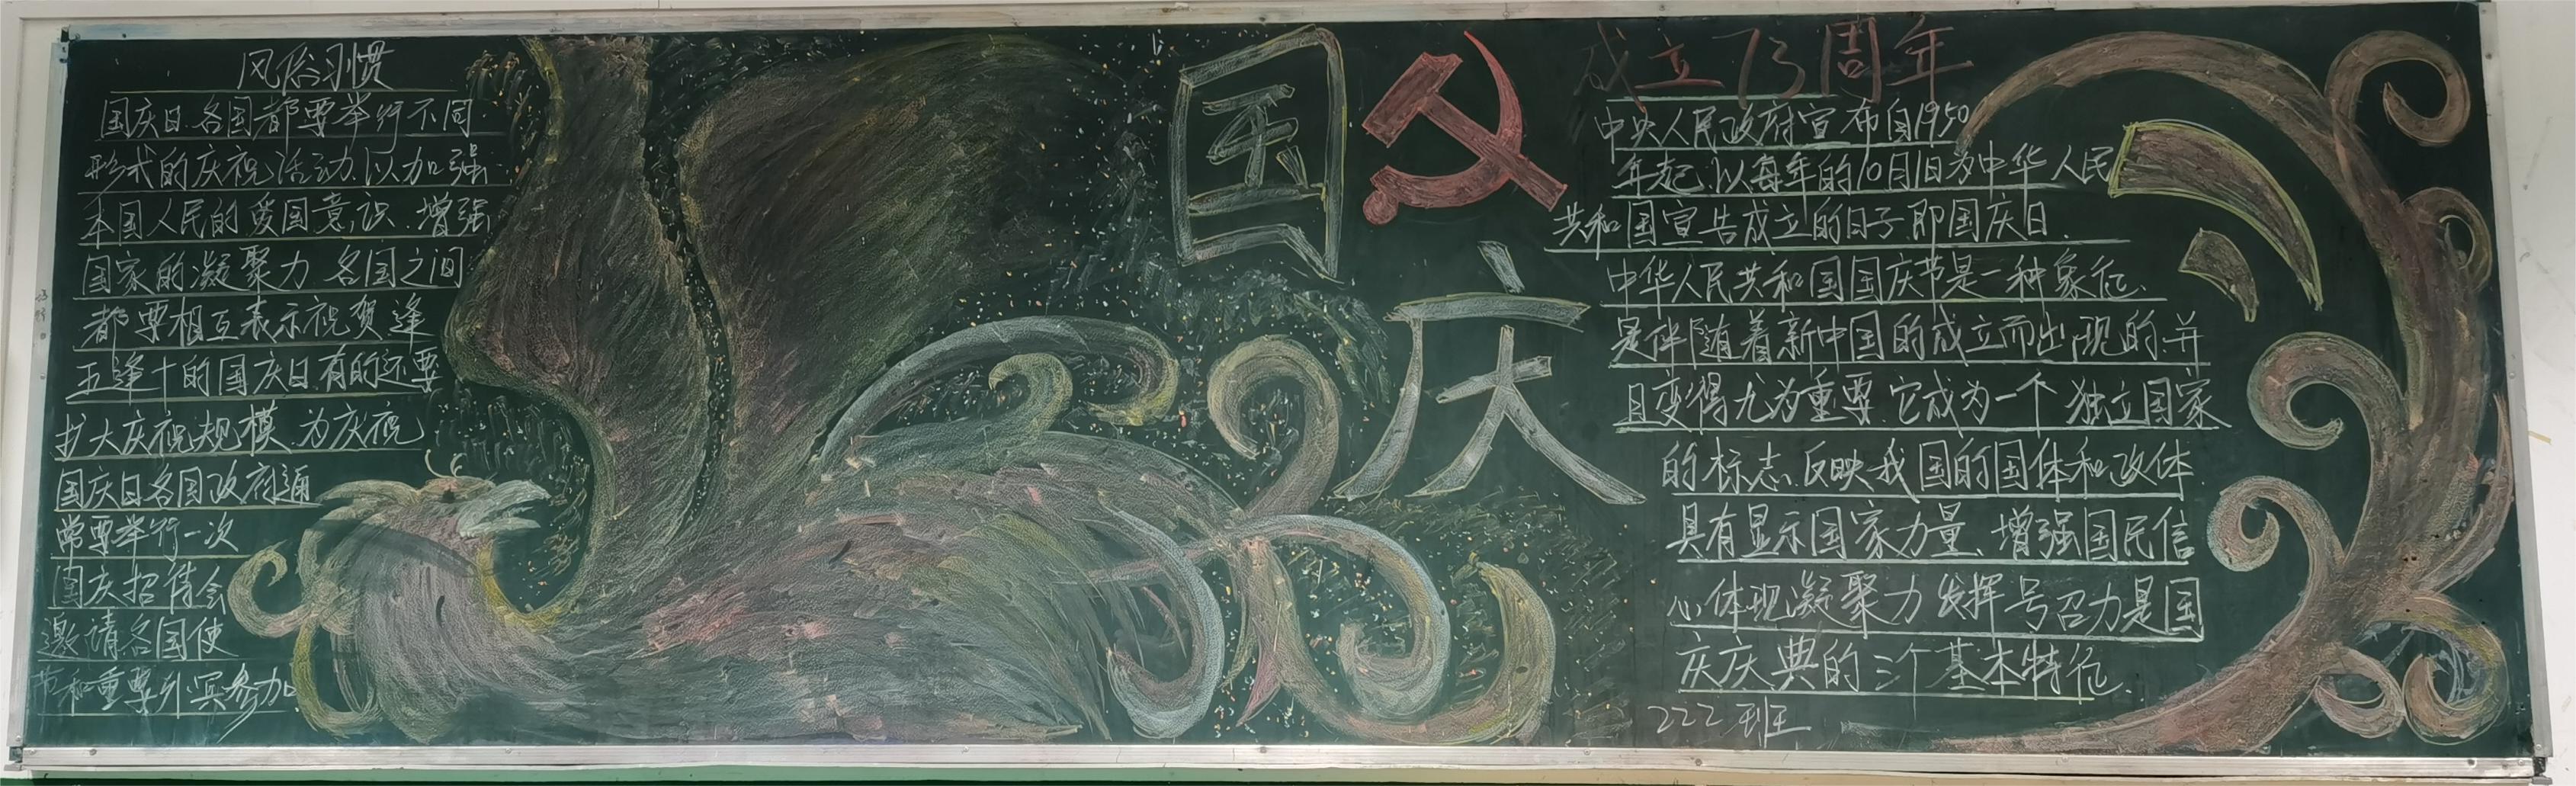 风俗习惯
国庆日各国都要举行不同
形式的庆祝活动,以加强
本国人民的爱国意识,增强
国家的凝聚力各国之间
都要相互表示祝贺逢
五逢十的国庆日,有的还要
扩大庆祝规模,为庆祝
国庆日各国政府通
常要举行一次
国庆招待会
邀请各国使
节和重要外宾参加
国
庆
成立73周年
中央人民政府宣布自1950
年起,以每年的10月1日为中华人民
共和国宣告成立的日子,即国庆日.
中华人民共和国国庆节是一种象征.
是伴随着新中国的成立而出现的,并
且变得尤为重要.它成为一个独立国家
的标志,反映我国的国体和政体
具有显示国家力量、增强国民信
心体现凝聚力发挥号召力是国
庆庆典的三个基本特征.
222班